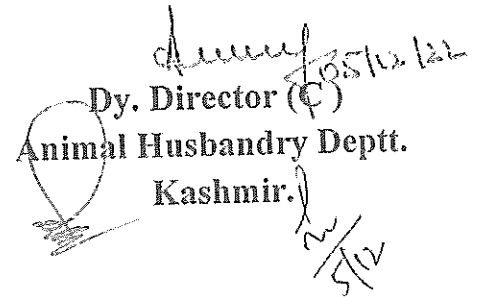 05/12/22
Dy. Director (C)
Animal Husbandry Deptt.
Kashmir.
5/12